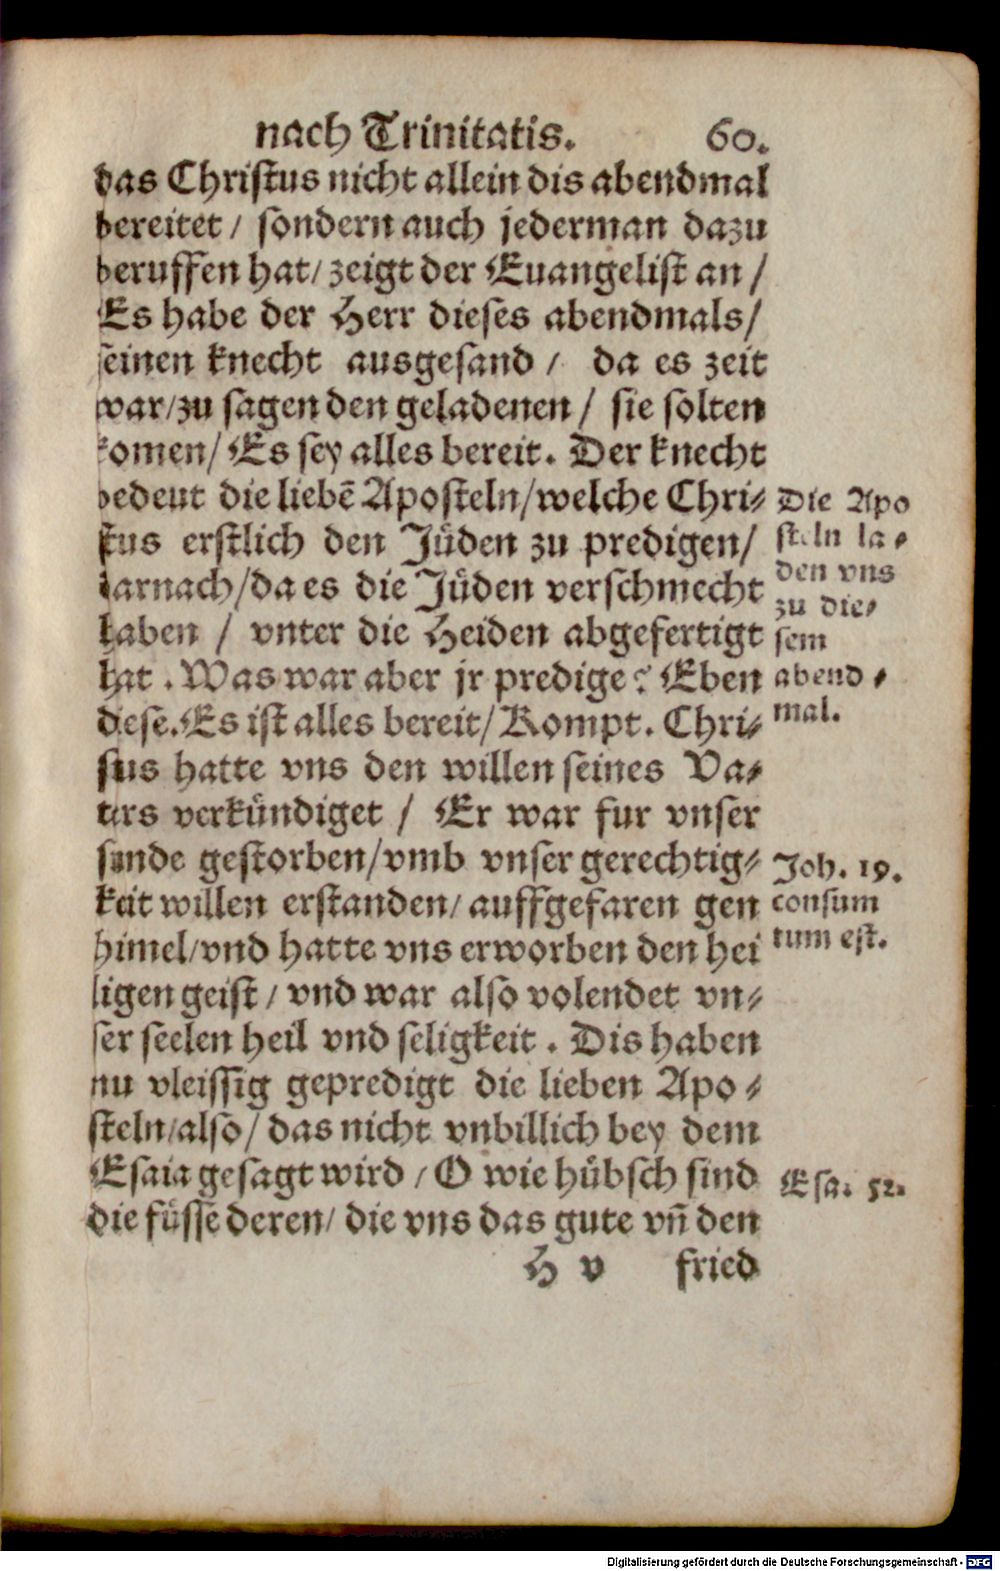 nach Trinitatis. 60.
das Christus nicht allein dis abendmal
bereitet / sondern auch jederman dazu
beruffen hat / zeigt der Euangelist an /
Es habe der Herr dieses abendmals /
seinen knecht ausgesand / da es zeit
war / zu sagen den geladenen / sie solten
komen / Es sey alles bereit. Der knecht
bedeut die liebē Aposteln / welche Chri⸗
stus erstlich den Jüden zu predigen /
darnach / da es die Jüden verschmecht
haben / vnter die Heiden abgefertigt
hat. Was war aber jr predige? Eben
diese. Es ist alles bereit / Kompt. Chri⸗
stus hatte vns den willen seines Va⸗
ters verkündiget / Er war fur vnser
sunde gestorben / vmb vnser gerechtig⸗
keit willen erstanden / auffgefaren gen
himel / vnd hatte vns erworben den hei
ligen geist / vnd war also volendet vn⸗
ser seelen heil vnd seligkeit. Dis haben
nu vleissig gepredigt die lieben Apo⸗
steln / also / das nicht vnbillich bey dem
Esaia gesagt wird / O wie hübsch sind
die füsse deren / die vns das gute vñ den
H v fried
Die Apo
steln la⸗
den vns
zu die⸗
sem
abend⸗
mal.
Joh. 19.
consum
tum est.
Esa. 52.
Digitalisierung gefördert durch die Deutsche Forschungsgemeinschaft - DFG